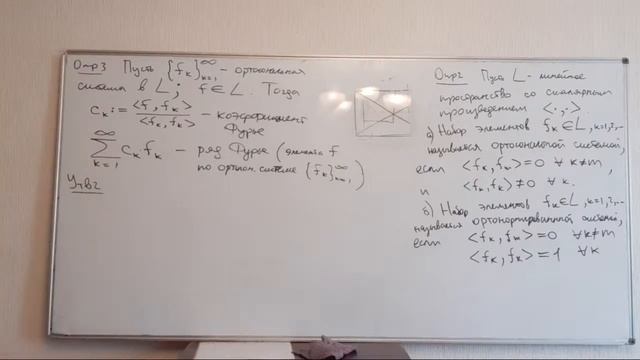 Опр3 Пусть {f_k}_{k=1}^∞ - ортогональная
система в L; f ∈ L. Тогда
c_k := <f, f_k> / <f_k, f_k> - коэффициент
Фурье
∑_{k=1}^∞ c_k f_k - ряд Фурье (элемента f
по ортогон. системе {f_k}_{k=1}^∞)
Утв2
Опр2 Пусть L - линейное
пространство со скалярным
произведением <·,·>
а) Набор элементов f_k ∈ L, k=1,2,..
называется ортогональной системой,
если <f_k, f_m> = 0 ∀ k≠m,
и <f_k, f_k> ≠ 0 ∀ k.
б) Набор элементов f_k ∈ L, k=1,2,..
называется ортонормированной системой,
если <f_k, f_m> = 0 ∀ k≠m
<f_k, f_k> = 1 ∀ k